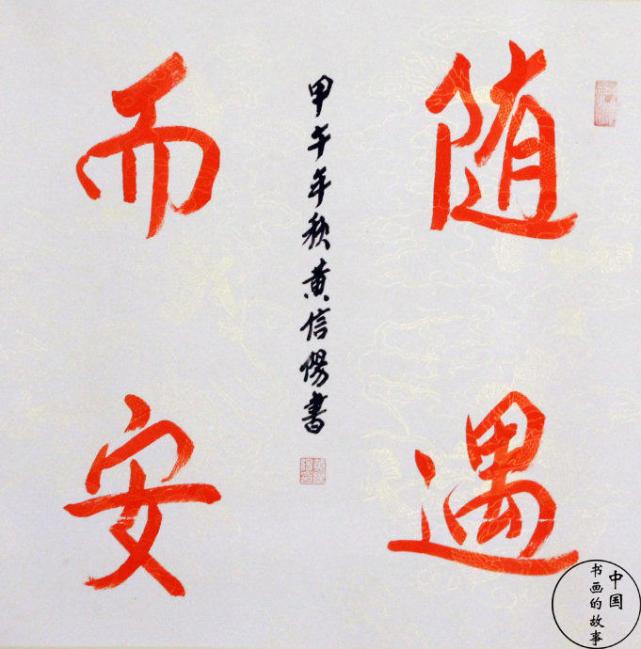 随遇
而安
甲午年秋黄信阳书
中国
书画的故事